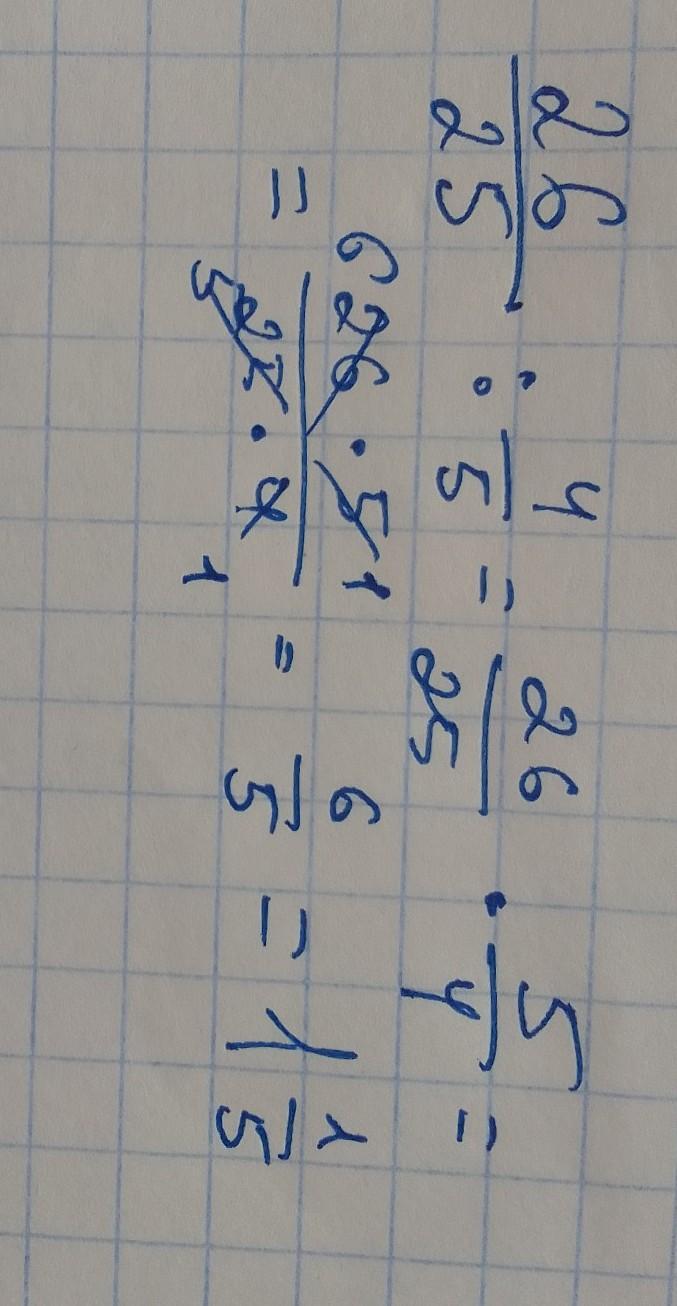 26/25 : 4/5 = 26/25 · 5/4 =
= 6 26 · 5 1 / 5 25 · 4 1 = 6/5 = 1 1/5